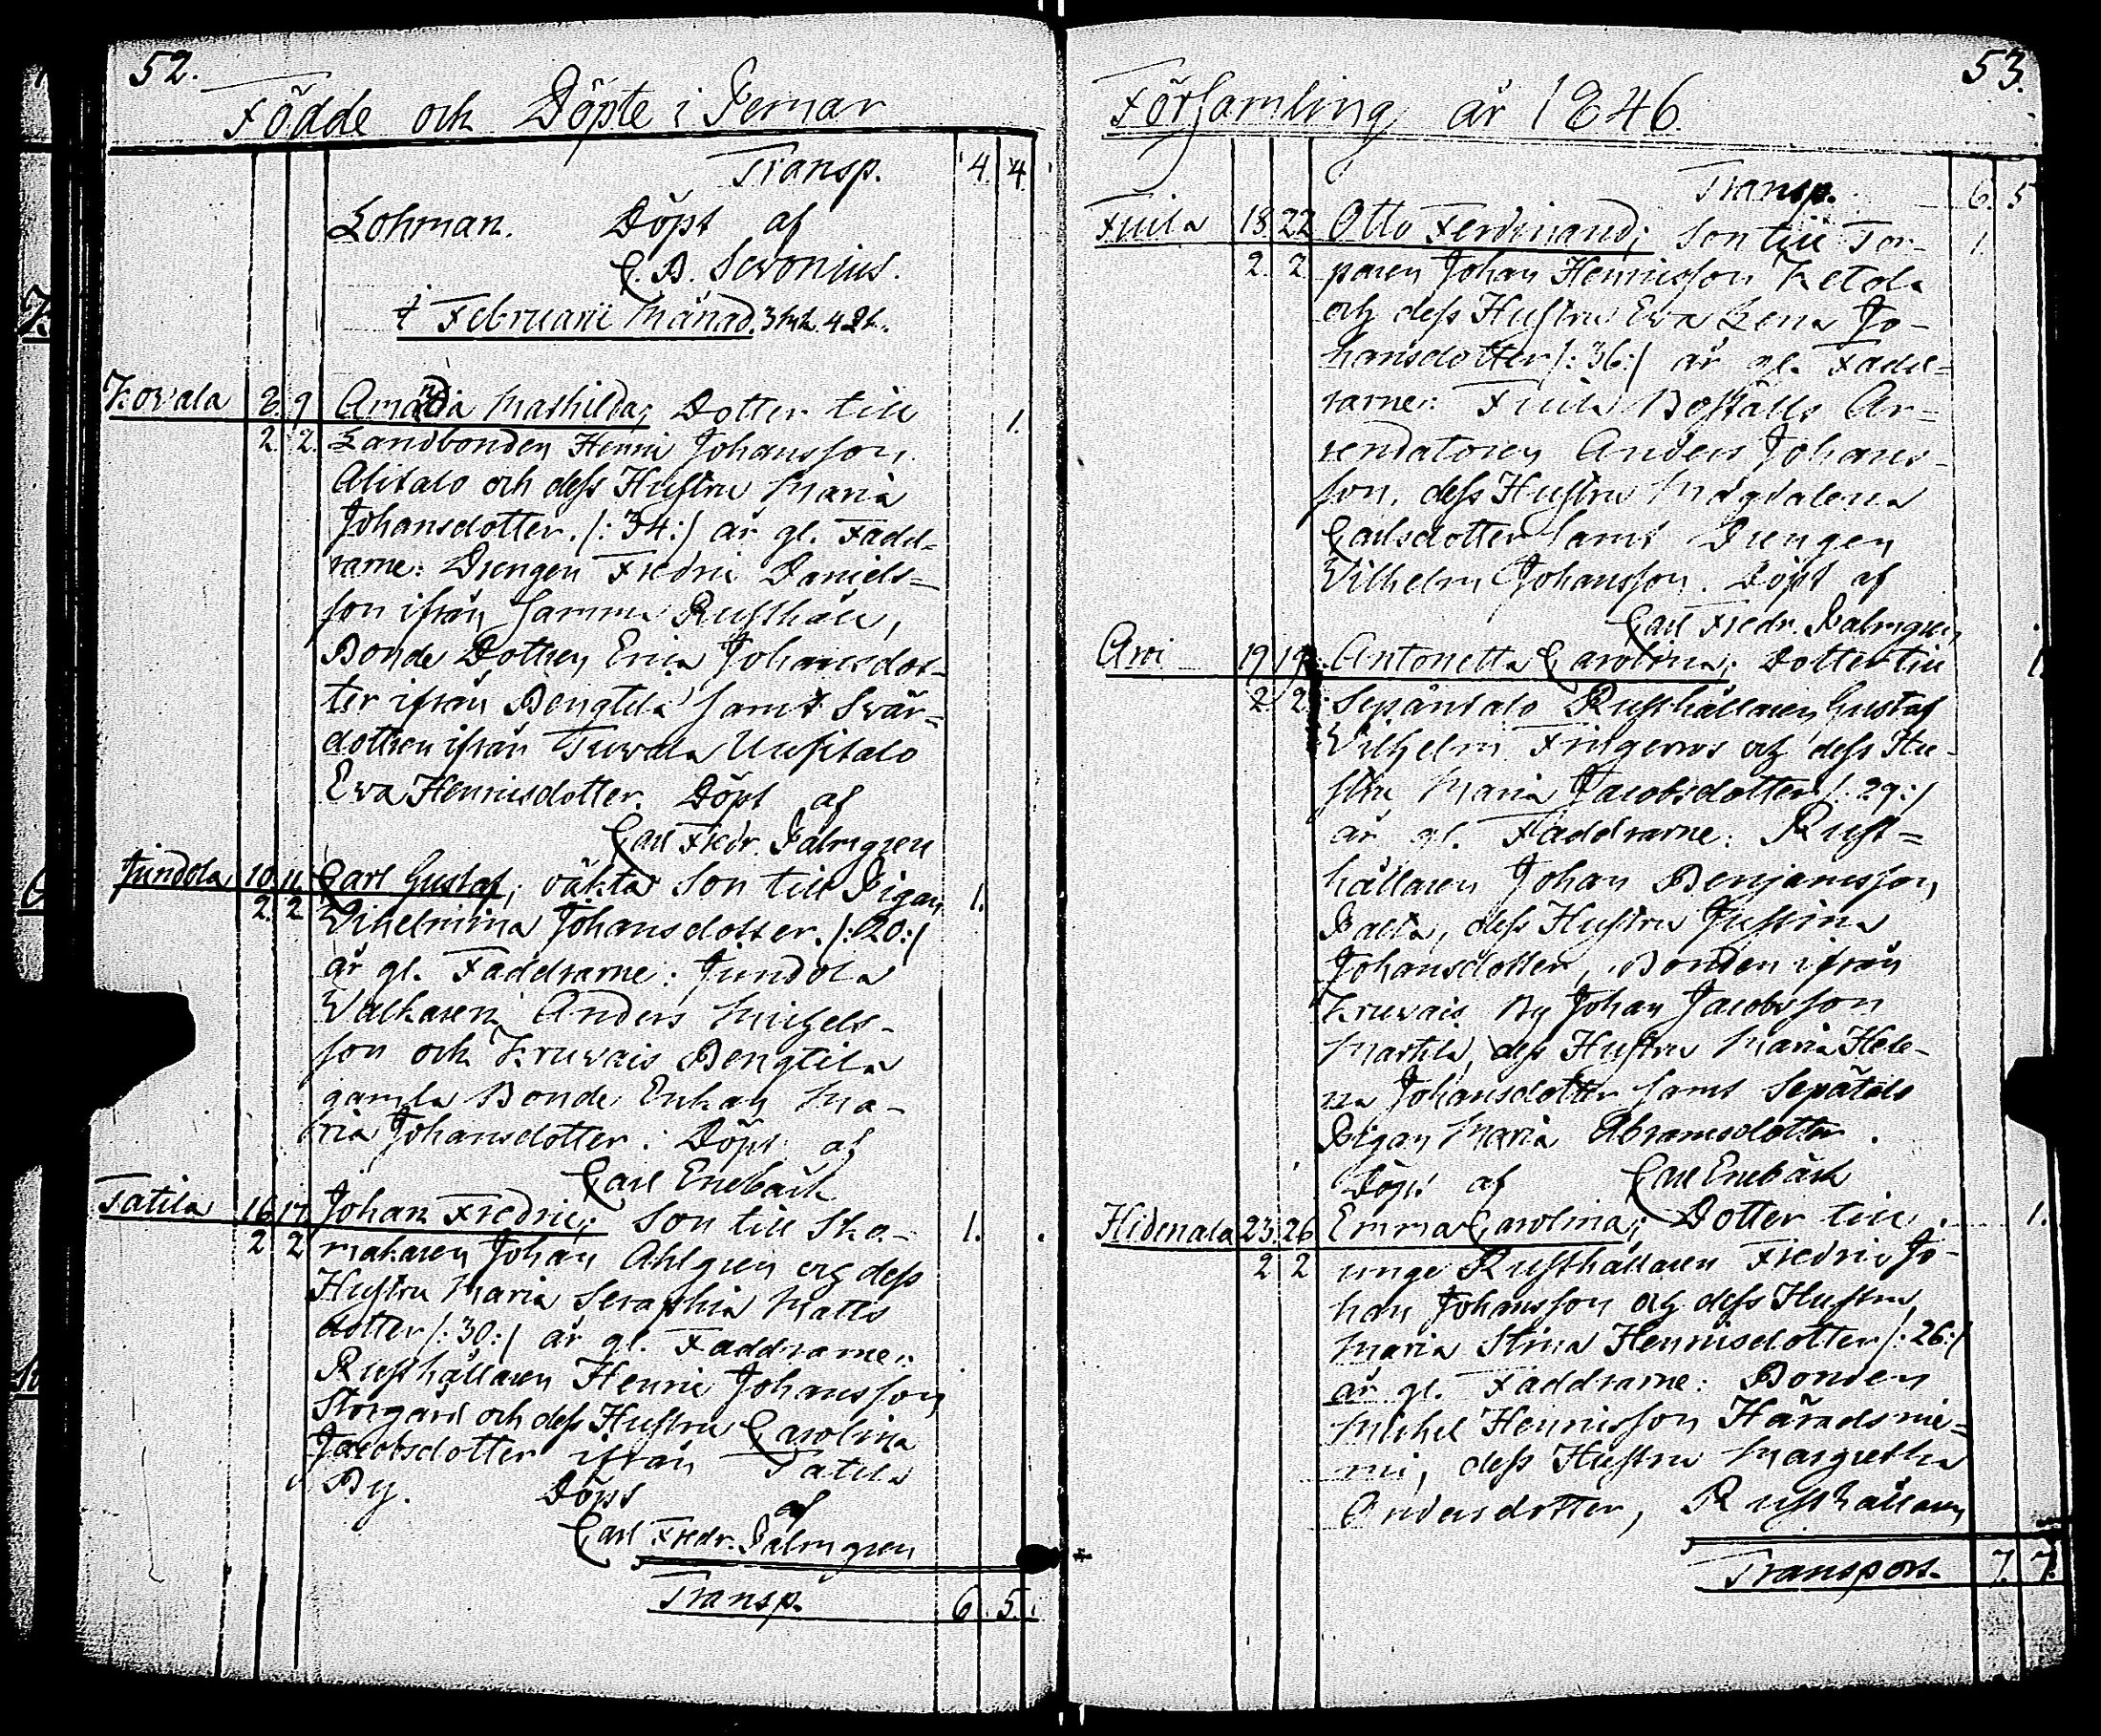 52.
Födde och Döpte i Pemar
Transp. 4. 4.
Lohman. Döpt af
C. B. Seronius.
i Februarii Månad. 3 Mk. 4 Qk.
Kovala 8. 9 Amanda Mathilda; Dotter till 1.
2. 2. Landbonden Henric Johansson
Alitalo och dess Hustru Maria
Johansdotter. /: 34:/ år gl. Fadd-
rarne: Drengen Fredric Daniels-
son ifrån samma Rusthåll,
Bonde Dottren Erica Johansdot-
ter ifrån Bengtilä samt Svär-
dottren ifrån Tuvala Uusitalo
Eva Henricsdotter. Döpt af
Carl Fredr. Palmgren
Jundola 10. 11. Carl Gustaf; oäkta Son till Pigan 1.
2. 2 Vilhelmina Johansdotter. /: 20:/
år gl. Faddrarne: Jundola
Valkaren Anders Michels-
son och Kruvais Bengtila
gamla Bonde Enkan Ma-
ria Johansdotter. Döpt af
Carl Enebäck
Tatila 16. 17. Johan Fredric; Son till Sko- 1.
2 2 makaren Johan Ahlgren och dess
Hustru Maria Seraphia Matts
dotter /: 30:/ år gl. Faddrarne:
Rusthållaren Henric Johansson
Storgård och dess Hustru Carolina
Jacobsdotter ifrån Tatila
By. Döpt af
Carl Fredr. Palmgren
Transp. 6. 5.
53.
Församling år 1846.
Transp. 6. 5
Fuila 18. 22 Otto Ferdinand; Son till Tor- 1.
2. 2 paren Johan Henricsson Ketola
och dess Hustru Eva Lena Jo-
hansdotter /: 36:/ år gl. Fadd-
rarne: Fuila Boställs Ar-
rendatoren Anders Johans-
son, dess Hustru Magdalena
Carlsdotter samt Drengen
Vilhelm Johansson. Döpt af
Carl Fredr. Palmgren
Arvi 19 19 Antonetta Carolina; Dotter till 1.
2 2 Sepäntalo Rusthållaren Gustaf
Vilhelm Fingerroos och dess Hu-
stru Maria Jacobsdotter /: 29:/
år gl. Faddrarne: Rust-
hållaren Johan Benjamsson
Palta, dess Hustru Justina
Johansdotter, Bonden ifrån
Kruvais By Johan Jacobsson
Martila, dess Hustru Maria Hele-
na Johansdotter samt Sepätalo
Pigan Maria Abramsdotter.
Döpt af Carl Enebäck
Hidenala 23. 26 Emma Carolina; Dotter till 1.
2 2 unge Rusthållaren Fredric Jo-
han Johansson och dess Hustru
Maria Stina Henricsdotter /: 26:/
år gl. Faddrarne: Bonden
Michel Henricsson Häradsnie-
mi, dess Hustru Margretha
Andersdotter, Rusthållaren
Transport. 7. 7.